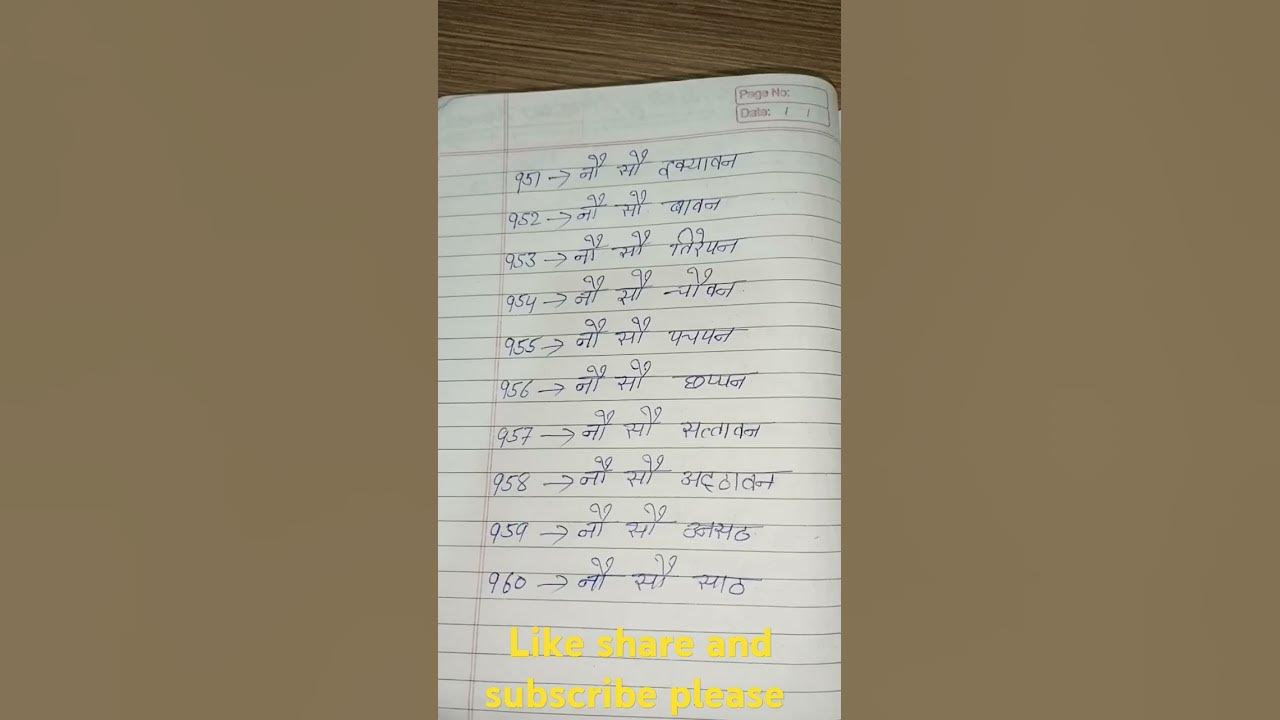 Page No:
Date: / /
951 → नौ सौ इक्यावन
952 → नौ सौ बावन
953 → नौ सौ तिरेपन
954 → नौ सौ चौवन
955 → नौ सौ पचपन
956 → नौ सौ छप्पन
957 → नौ सौ सत्तावन
958 → नौ सौ अट्ठावन
959 → नौ सौ उनसठ
960 → नौ सौ साठ
Like share and
subscribe please